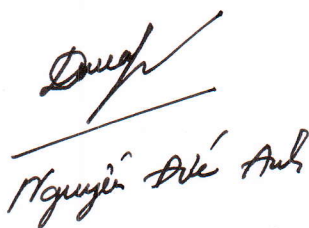 Nguyễn Đức Anh